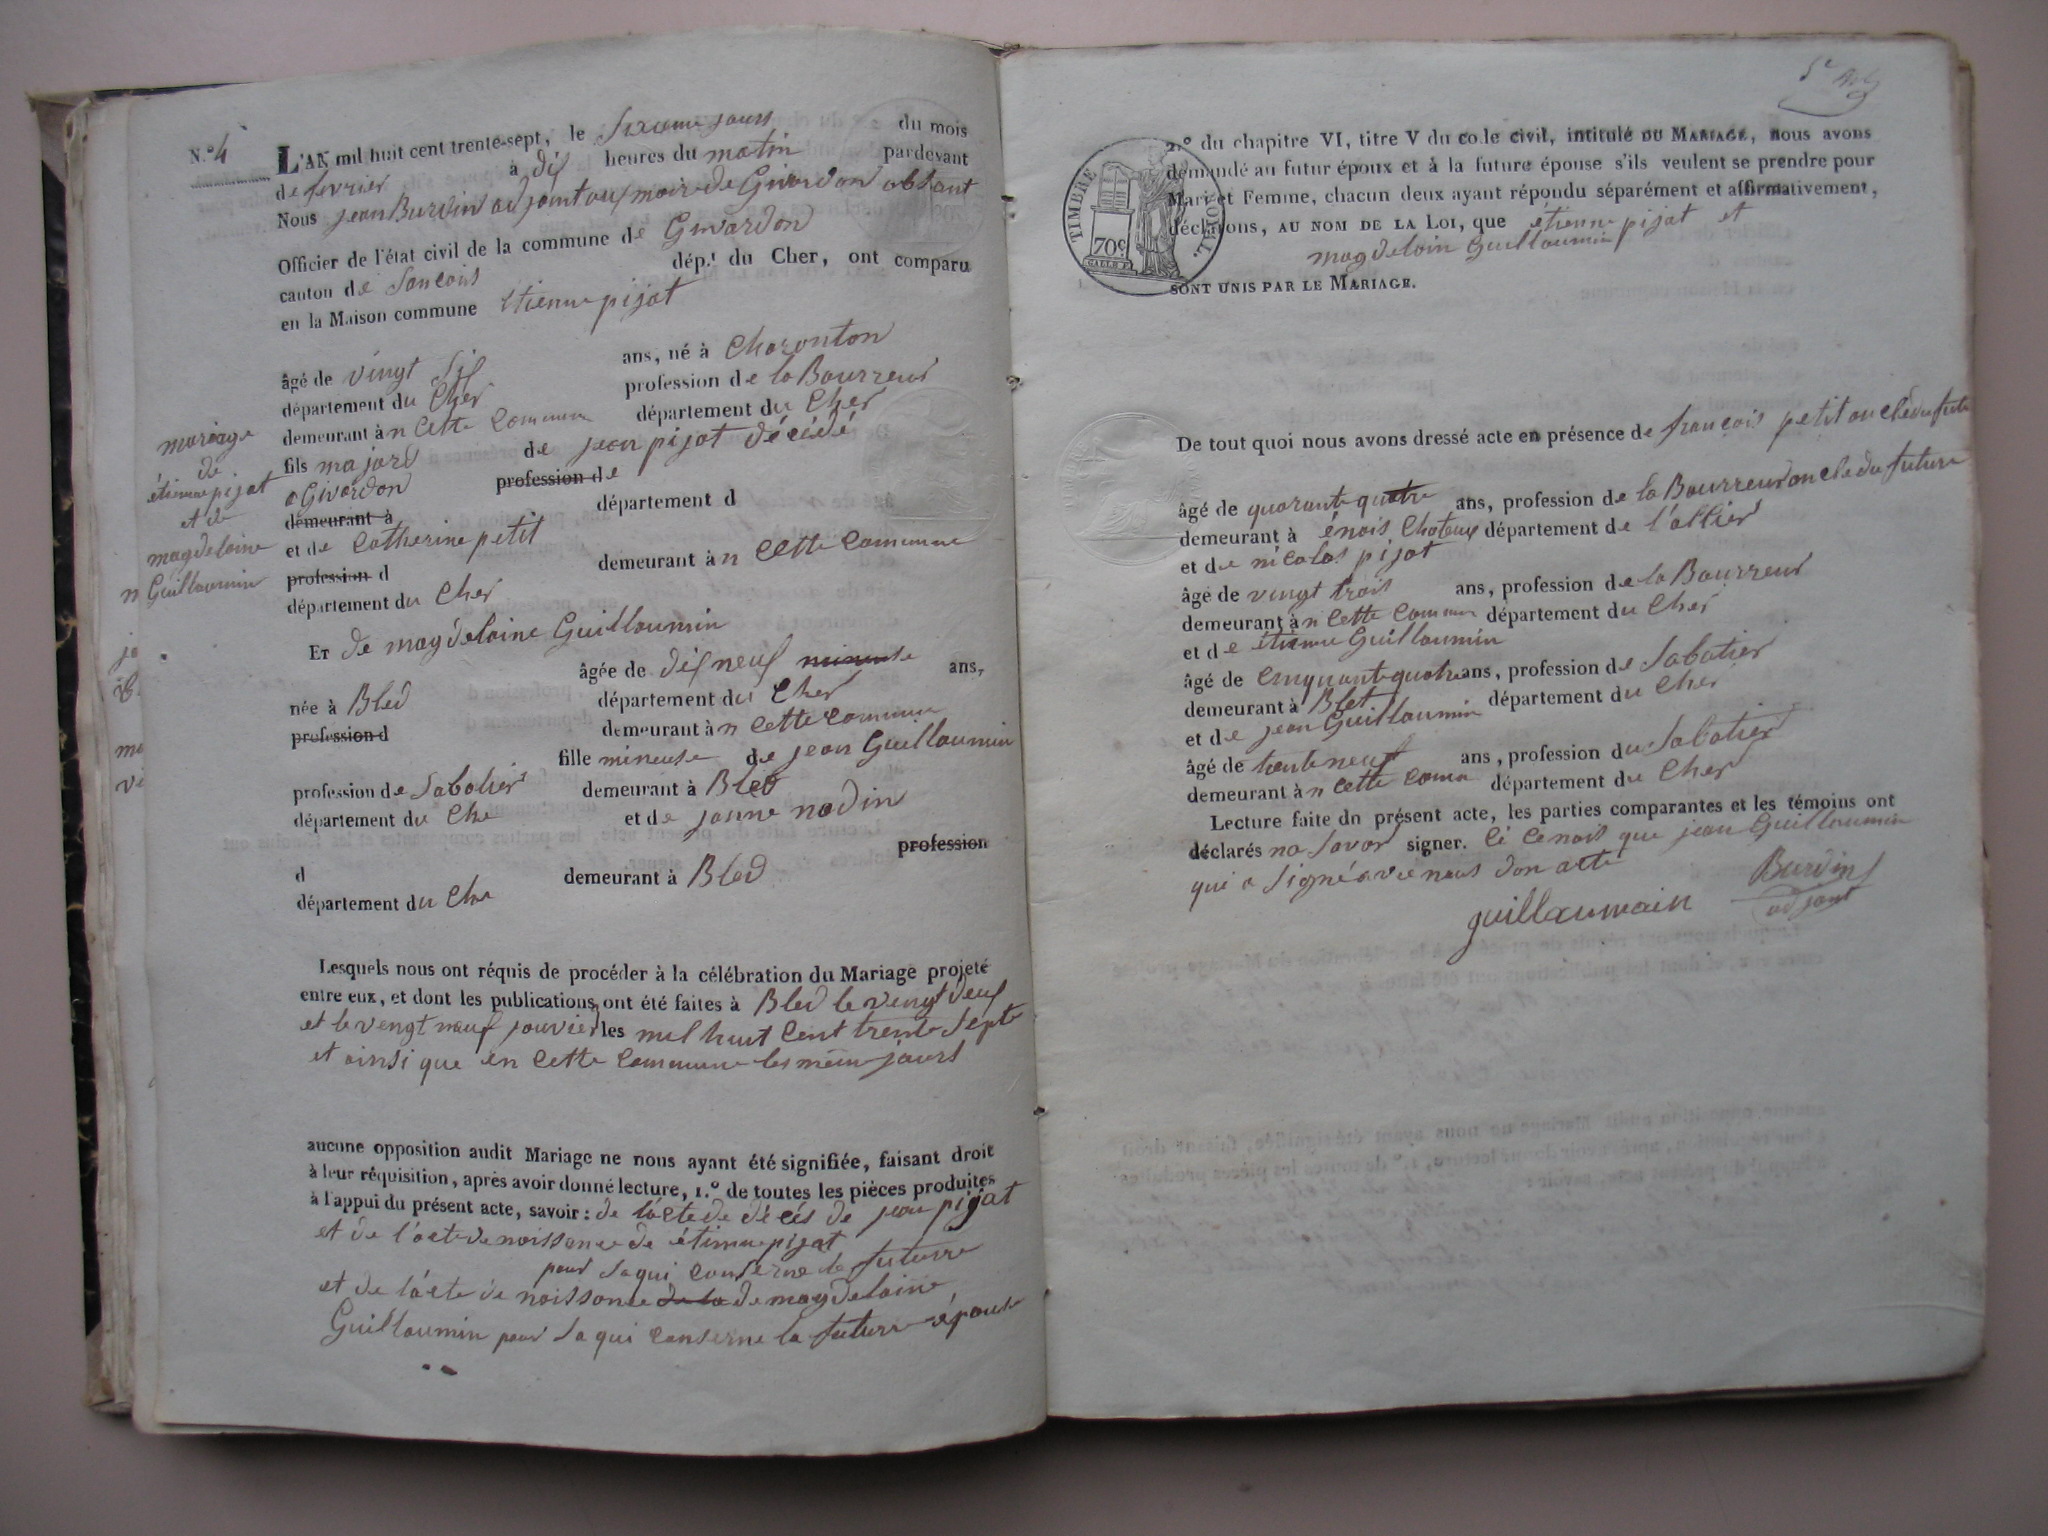 N.º 4
L'AN mil huit cent trente-sept, le Sixieme jours du mois
de fevrier à dix heures du matin pardevant
Nous jean Burdin adjoint aux maire de Givardon absant
Officier de l'état civil de la commune de Givardon
canton de Sancoins dép.t du Cher, ont comparu
en la Maison commune étienne pijat
âgé de vingt Six ans, né à Charonton
département du Cher profession de laBourreur
demeurant àn Cette Commune département du Cher
fils majors de jean pijat décédé
a Givardon profession de
demeurant à département d
et de Catherine petit
profession d demeurant àn Cette Commune
département du Cher
mariage
de
étienne pijat
et de
magdelaine
Guillaumin
ET de magdelaine Guillaumin
âgée de dix neuf mineuse ans,
née à Bled département du Cher
profession d demeurant àn Cette Commune
fille mineuse de jean Guillaumin
profession de Sabotier demeurant à Bled
département du Che et de janne nadin
profession
d demeurant à Bled
département du Che
Lesquels nous ont réquis de procéder à la célébration du Mariage projeté
entre eux, et dont les publications ont été faites à Bled le vingt deux
et le vengt neuf janvier les mil huit Cent trente Sept
et ainsi que en Cette Commune les mème jours
aucune opposition audit Mariage ne nous ayant été signifiée, faisant droit
à leur réquisition, après avoir donné lecture, 1.º de toutes les pièces produites
à l'appui du présent acte, savoir : de l'acte de décés de jean pijat
et de l'acte de naissance de étienne pijat
pour Saqui Conserne le future
et de l'acte de naissance de la de magdelaine
Guillaumin pour Saqui Conserne la future épouse
2.º du chapitre VI, titre V du code civil, intitulé DU MARIAGE, nous avons
demandé au futur époux et à la future épouse s'ils veulent se prendre pour
Mari et Femme, chacun deux ayant répondu séparément et affirmativement,
déclarons, AU NOM DE LA LOI, que étienne pijat et
magdeloin Guillaumin
SONT UNIS PAR LE MARIAGE.
TIMBRE ROYAL
70c
De tout quoi nous avons dressé acte en présence de françois petit
âgé de quarante quatre ans, profession de laBourreur oncle du future
demeurant à énais Chateux département de l'allier
et de nicolas pijat
âgé de vingt trois ans, profession de laBourreur
demeurant àn Cette Commun département du Cher
et de étienne Guillaumin
âgé de Cinquante quatre ans, profession de Sabotier
demeurant à Blet département du Cher
et de jean Guillaumin
âgé de trente neuf ans, profession du Sabotier
demeurant àn Cette Comm département du Cher
Lecture faite du présent acte, les parties comparantes et les témoins ont
déclarés na Savor signer. Ci Cenais que jean Guillaumin
qui a Signé avec nous don acte
guillaumain
Burdin
adjoint